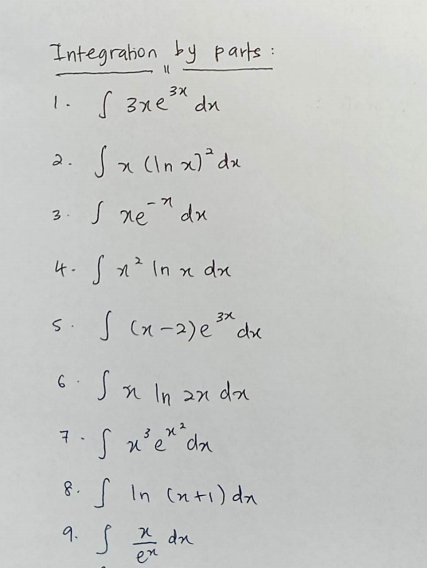 Integration by parts :
1. ∫ 3xe^{3x} dx
2. ∫ x (ln x)^2 dx
3. ∫ xe^{-x} dx
4. ∫ x^2 ln x dx
5. ∫ (x-2)e^{3x} dx
6. ∫ x ln 2x dx
7. ∫ x^3 e^{x^2} dx
8. ∫ ln (x+1) dx
9. ∫ x/e^x dx